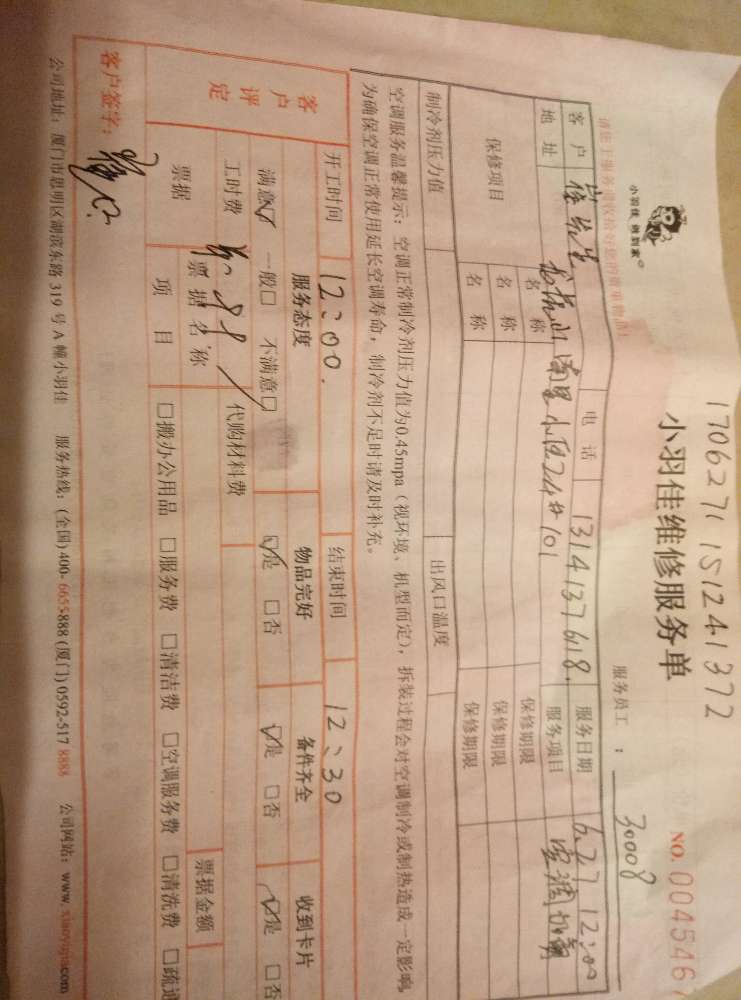 1706271151241372
小羽佳 做到家
小羽佳维修服务单
NO. 0045467
服务员工： 30008
客户 电话 1314137618. 服务日期 6.27 12:00
地址 南里小区24#101 服务项目 空调加氟
保修项目 名称 保修期限
名称 保修期限
名称 保修期限
制冷剂压力值 出风口温度
空调服务温馨提示：空调正常制冷剂压力值为0.45mpa（视环境、机型而定），拆装过程会对空调制冷或制热造成一定影响，
为确保空调正常使用延长空调寿命，制冷剂不足时请及时补充。
开工时间 12:00. 结束时间 12:30
客户评定 服务态度 物品完好 备件齐全 收到卡片
满意☑ 一般□ 不满意□ ☑是 □否 ☑是 □否 ☑是 □否
工时费 代购材料费
票据 票据名称 票据金额
项目 □搬办公用品 □服务费 □清洁费 □空调服务费 □清洗费 □疏通
客户签字：
公司地址：厦门市思明区湖滨东路 319 号 A 幢小羽佳 服务热线：(全国) 400-6655888 (厦门) 0592-517 8888 公司网站：www.xiaoyujia.com